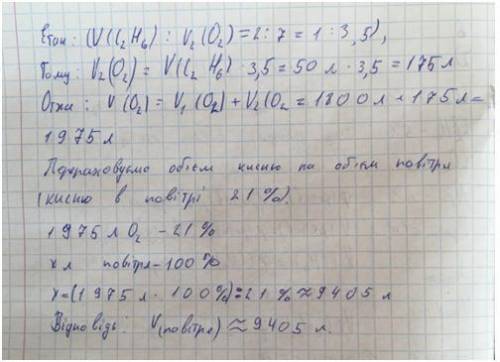 Етан: (V(C₂H₆) : V₂(O₂) = 2 : 7 = 1 : 3,5),
Тому: V₂(O₂) = V(C₂H₆) · 3,5 = 50 л · 3,5 = 175 л
Отже: V(O₂) = V₁(O₂) + V₂(O₂ = 1800 л + 175 л =
1975 л
Перераховуємо обʼєм кисню на обʼєм повітря
(кисню в повітрі 21%).
1975 л O₂ – 21%
х л повітря – 100%
х = (1975 л · 100%) : 21% ≈ 9405 л
Відповідь: V(повітря) ≈ 9405 л.